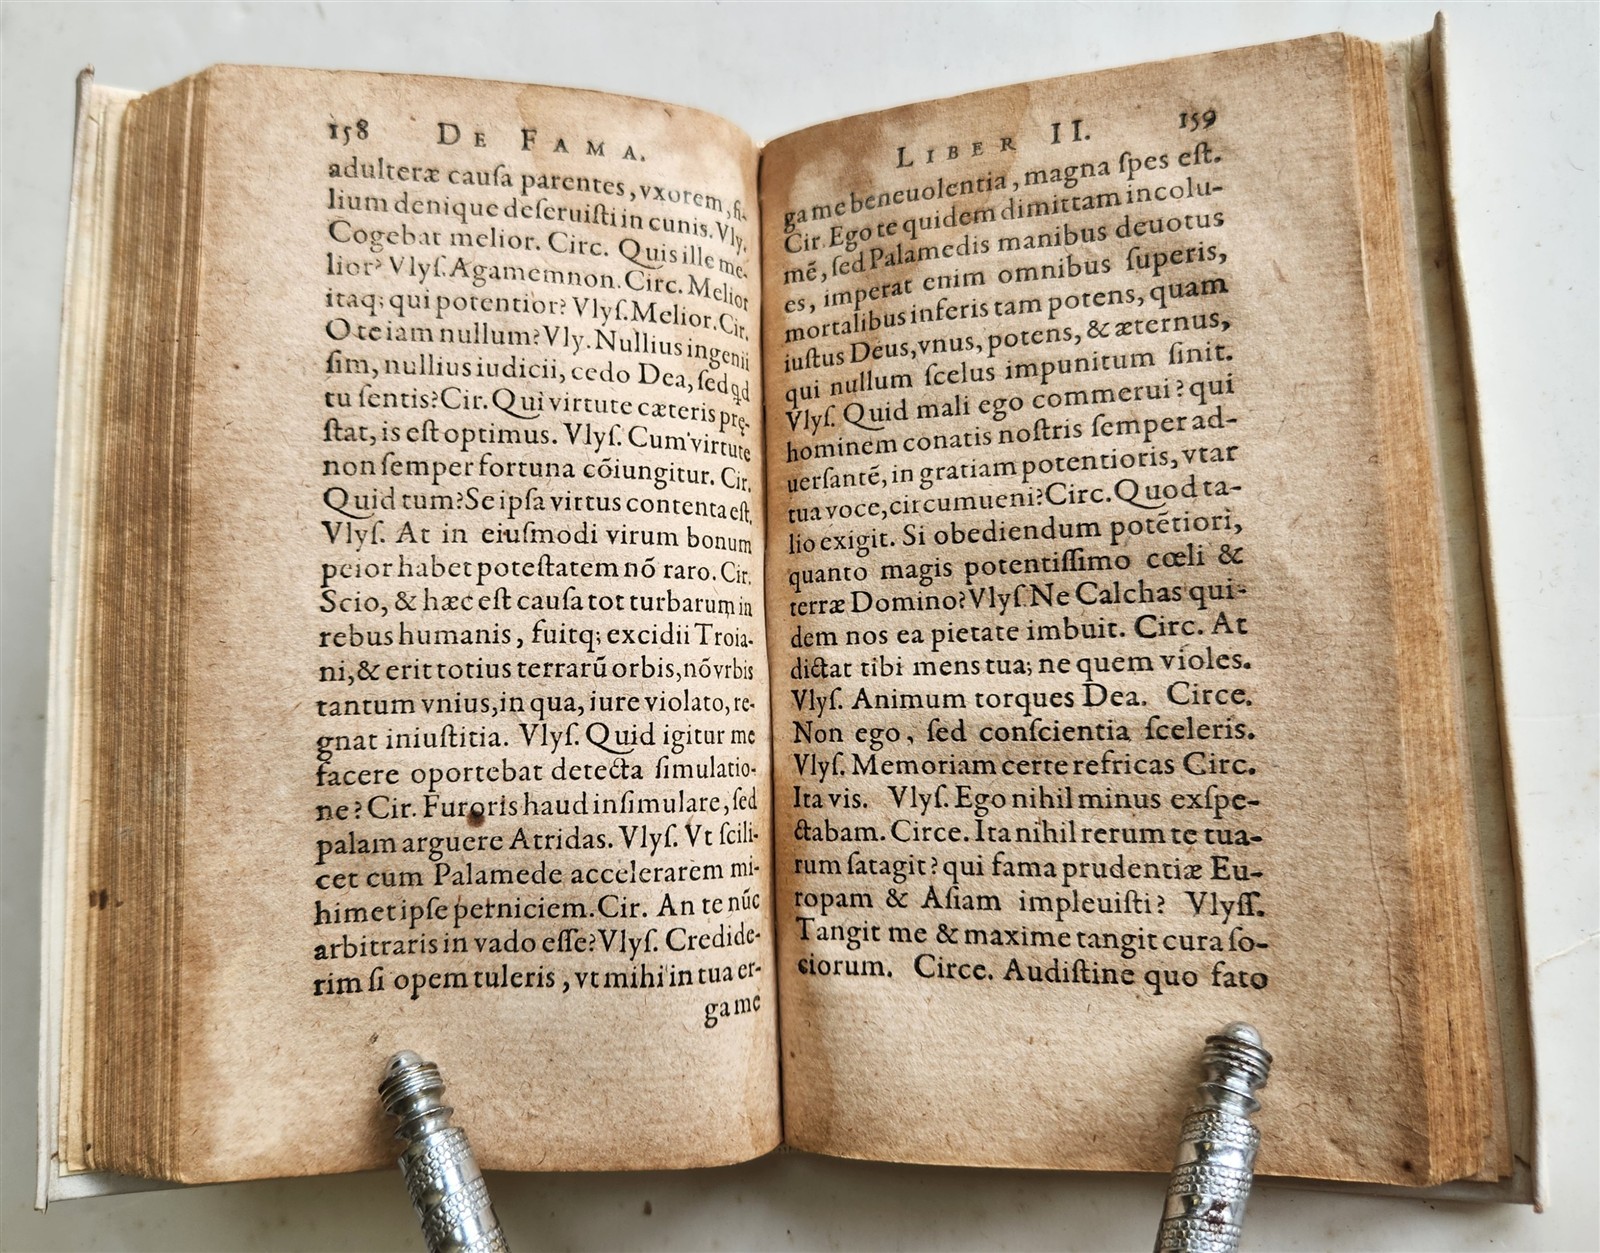 158 DE FAMA.
adulteræ cauſa parentes, vxorem, fi-
lium denique deſeruiſti in cunis. Vly.
Cogebat melior. Circ. Quis ille me-
lior? Vlyſ. Agamemnon. Circ. Melior
itaq; qui potentior? Vlyſ. Melior. Cir.
O te iam nullum? Vly. Nullius ingenii
ſim, nullius iudicii, cedo Dea, ſed qd
tu ſentis? Cir. Qui virtute cæteris prę-
ſtat, is eſt optimus. Vlyſ. Cum virtute
non ſemper fortuna cõiungitur. Cir.
Quid tum? Se ipſa virtus contenta eſt.
Vlyſ. At in eiuſmodi virum bonum
peior habet poteſtatem nõ raro. Cir.
Scio, & hæc eſt cauſa tot turbarum in
rebus humanis, fuitq; excidii Troia-
ni, & erit totius terrarũ orbis, nõ vrbis
tantum vnius, in qua, iure violato, re-
gnat iniuſtitia. Vlyſ. Quid igitur me
facere oportebat detecta ſimulatio-
ne? Cir. Furoris haud inſimulare, ſed
palam arguere Atridas. Vlyſ. Vt ſcili-
cet cum Palamede accelerarem mi-
himet ipſe perniciem. Cir. An te nũc
arbitraris in vado eſſe? Vlyſ. Credide-
rim ſi opem tuleris, vt mihi in tua er-
ga me
LIBER II. 159
ga me beneuolentia, magna ſpes eſt.
Cir. Ego te quidem dimittam incolu-
mẽ, ſed Palamedis manibus deuotus
es, imperat enim omnibus ſuperis,
mortalibus inferis tam potens, quam
iuſtus Deus, vnus, potens, & æternus,
qui nullum ſcelus impunitum ſinit.
Vlyſ. Quid mali ego commerui? qui
hominem conatis noſtris ſemper ad-
uerſantẽ, in gratiam potentioris, vtar
tua voce, circumueni? Circ. Quod ta-
lio exigit. Si obediendum potẽtiori,
quanto magis potentiſſimo cœli &
terræ Domino? Vlyſ. Ne Calchas qui-
dem nos ea pietate imbuit. Circ. At
dictat tibi mens tua; ne quem violes.
Vlyſ. Animum torques Dea. Circe.
Non ego, ſed conſcientia ſceleris.
Vlyſ. Memoriam certe refricas Circ.
Ita vis. Vlyſ. Ego nihil minus exſpe-
ctabam. Circe. Ita nihil rerum te tua-
rum ſatagit? qui fama prudentiæ Eu-
ropam & Aſiam impleuiſti? Vlyſſ.
Tangit me & maxime tangit cura ſo-
ciorum. Circe. Audiſtine quo fato